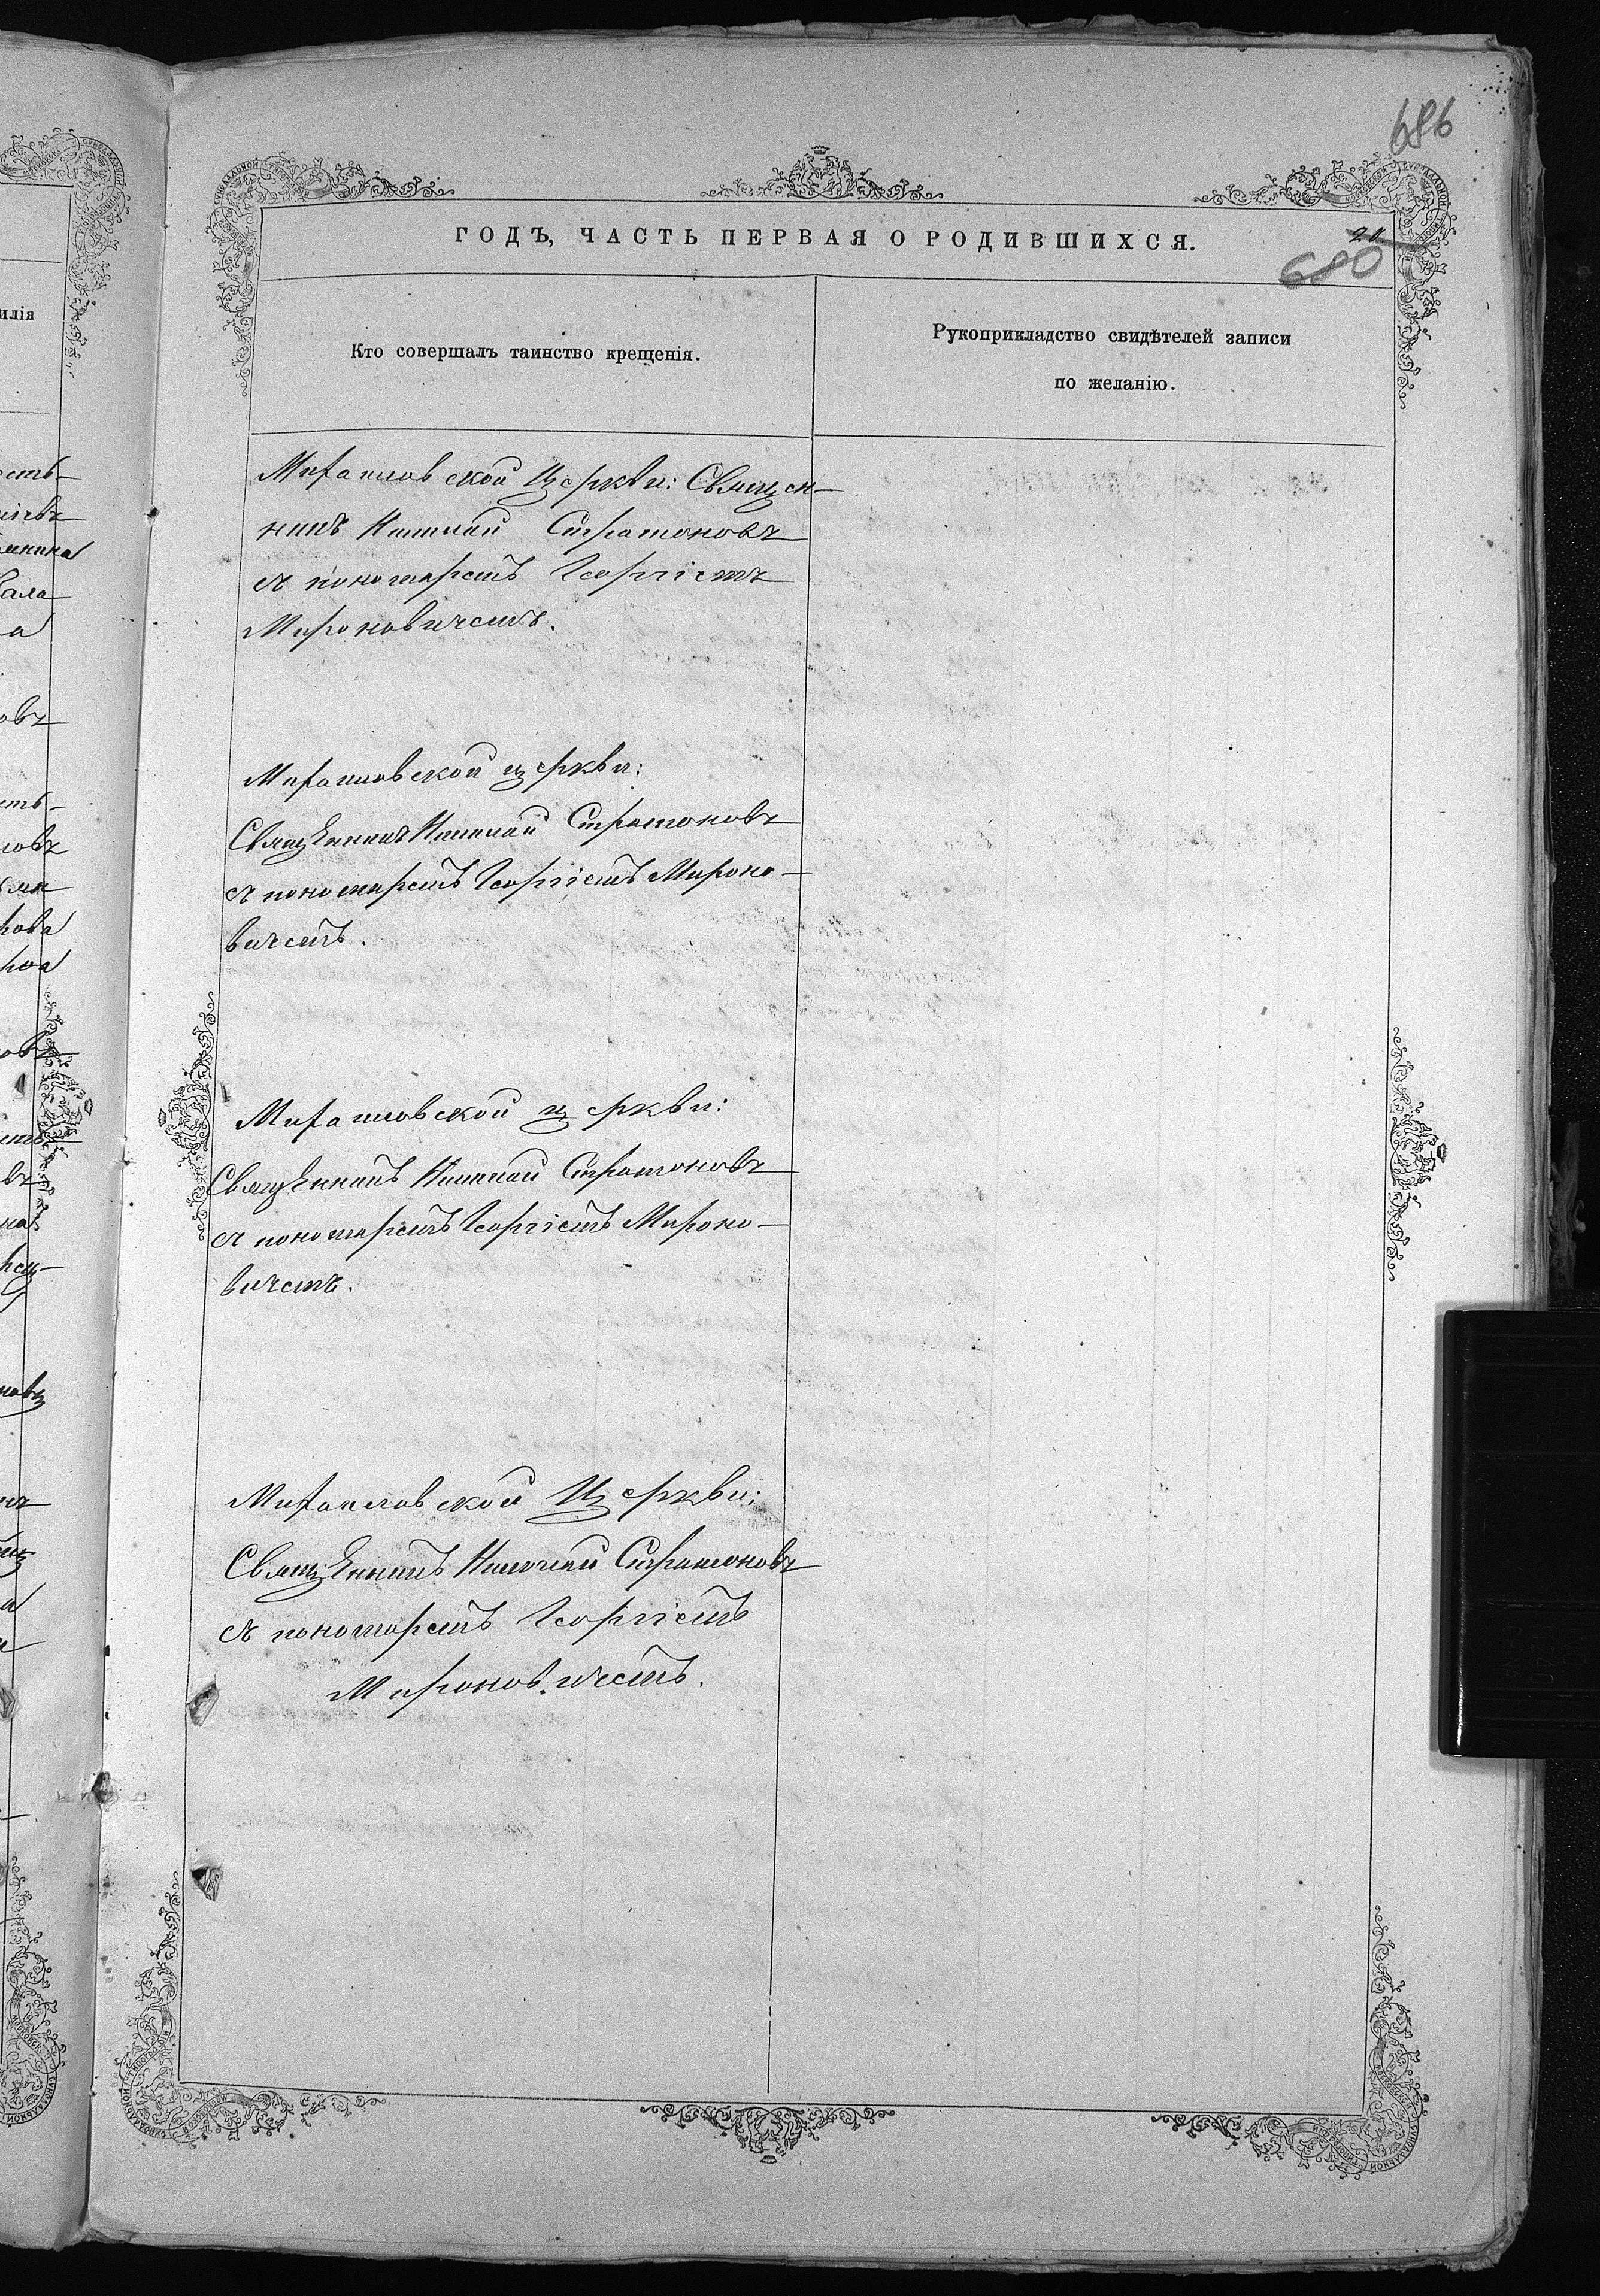 686
ГОДЪ, ЧАСТЬ ПЕРВАЯ О РОДИВШИХСЯ.
680
Кто совершалъ таинство крещенія.
Рукоприкладство свидѣтелей записи
по желанію.
Михаиловской Церкви: Священ-
никъ Николай Стратоновъ
съ пономаремъ Георгіемъ
Мироновичемъ.
Михаиловской церкви:
Священникъ Николай Стратоновъ
съ пономаремъ Георгіемъ Мироно-
вичемъ.
Михаиловской церкви:
Священникъ Николай Стратоновъ
съ пономаремъ Георгіемъ Мироно-
вичемъ.
Михаиловской Церкви:
Священникъ Николай Стратоновъ
съ пономаремъ Георгіемъ
Мироновичемъ.